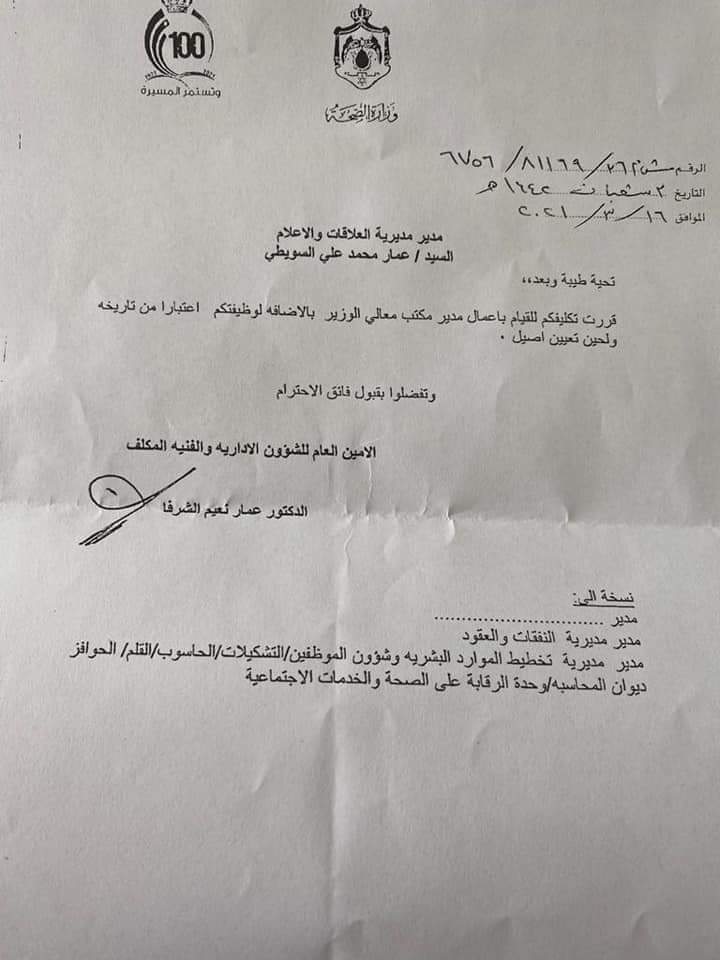 100
1921 2021
وتستمر المسيرة
وزارة الصحة
الرقم ش م / ٣٦٢ / ٨١١٦٩ / ٦٧٥٦
التاريخ ٢ شعبان ١٤٤٢ هـ
الموافق ١٦ / ٣ / ٢٠٢١
مدير مديرية العلاقات والاعلام
السيد / عمار محمد علي السويطي
تحية طيبة وبعد،،
قررت تكليفكم للقيام باعمال مدير مكتب معالي الوزير بالاضافه لوظيفتكم اعتبارا من تاريخه
ولحين تعيين اصيل .
وتفضلوا بقبول فائق الاحترام
الامين العام للشؤون الاداريه والفنيه المكلف
الدكتور عمار نعيم الشرفا
نسخة الى:
مدير ..............................
مدير مديرية النفقات والعقود
مدير مديرية تخطيط الموارد البشريه وشؤون الموظفين/التشكيلات/الحاسوب/القلم/ الحوافز
ديوان المحاسبه/وحدة الرقابة على الصحة والخدمات الاجتماعية